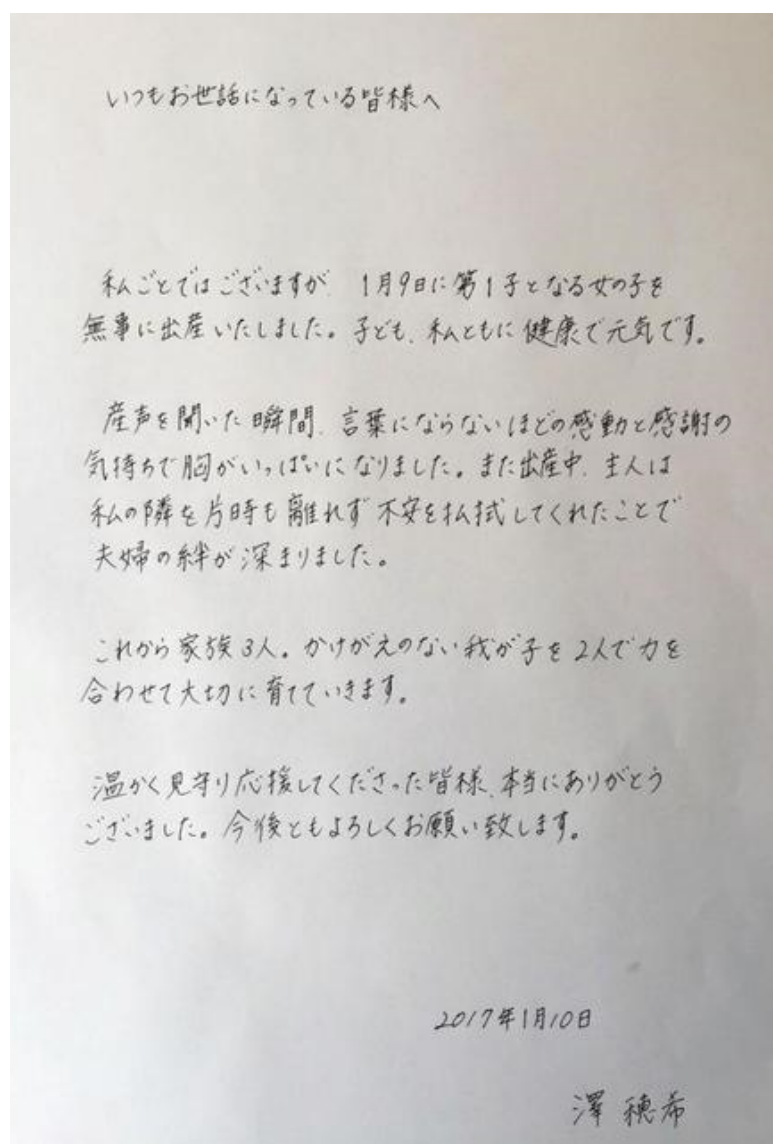 いつもお世話になっている皆様へ
私ごとではございますが、1月9日に第1子となる女の子を
無事に出産いたしました。子ども、私ともに健康で元気です。
産声を聞いた瞬間、言葉にならないほどの感動と感謝の
気持ちで胸がいっぱいになりました。また出産中、主人は
私の隣を片時も離れず不安を払拭してくれたことで
夫婦の絆が深まりました。
これから家族3人。かけがえのない我が子を2人で力を
合わせて大切に育てていきます。
温かく見守り応援してくださった皆様、本当にありがとう
ございました。今後ともよろしくお願い致します。
2017年1月10日
澤 穂希